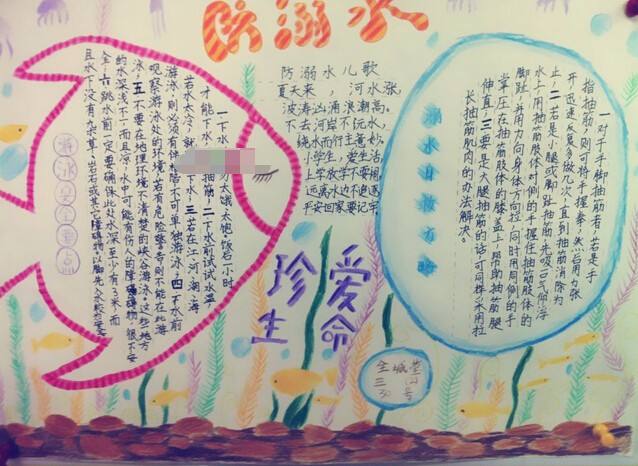 防溺水
防溺水儿歌
夏天来，河水涨，
波涛汹涌浪潮高。
不去河岸不玩水，
绕水而行主意妙。
小学生，爱生活
上学放学不打闹
远离水边不追逐
平安回家要记牢
珍爱
生命
游泳安全要点
一下水
太饿、太饱。饭后一小时
才能
抽筋，二下水前试试水温
若水太冷，就
下水，三若在江、河、湖、海
游泳，则必须有伴
陪不可单独游泳。四下水前
观察游泳处的环境，若有危险警告则不能在此游
泳，五不要在地理环境不清楚的峡谷游泳。这些地方
的水深浅不一而且凉，水中可能有伤人的障碍物，很不安
全，六跳水前一定要确保此处水深至少有3米，而
且水下没有杂草、岩石或其它障碍物以脚先入水较安
溺水自救方
一对于手脚抽筋者，若是手
指抽筋，则可将手握拳，然后用力张
开，迅速反复多做几次，直到抽筋消除为
二若是小腿或脚趾抽筋先吸口气仰浮
水上，用抽筋肢体对侧的手握住抽筋肢体的
脚趾，并用力向身体方向拉，同时用同侧的手
掌压在抽筋肢体的膝盖上，帮助抽筋腿
伸直，三要是大腿抽筋的话，可同样采用拉
长抽筋肌肉的办法解决。
金城堂
30号